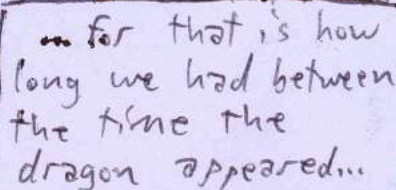 ... for that is how
long we had between
the time the
dragon appeared...